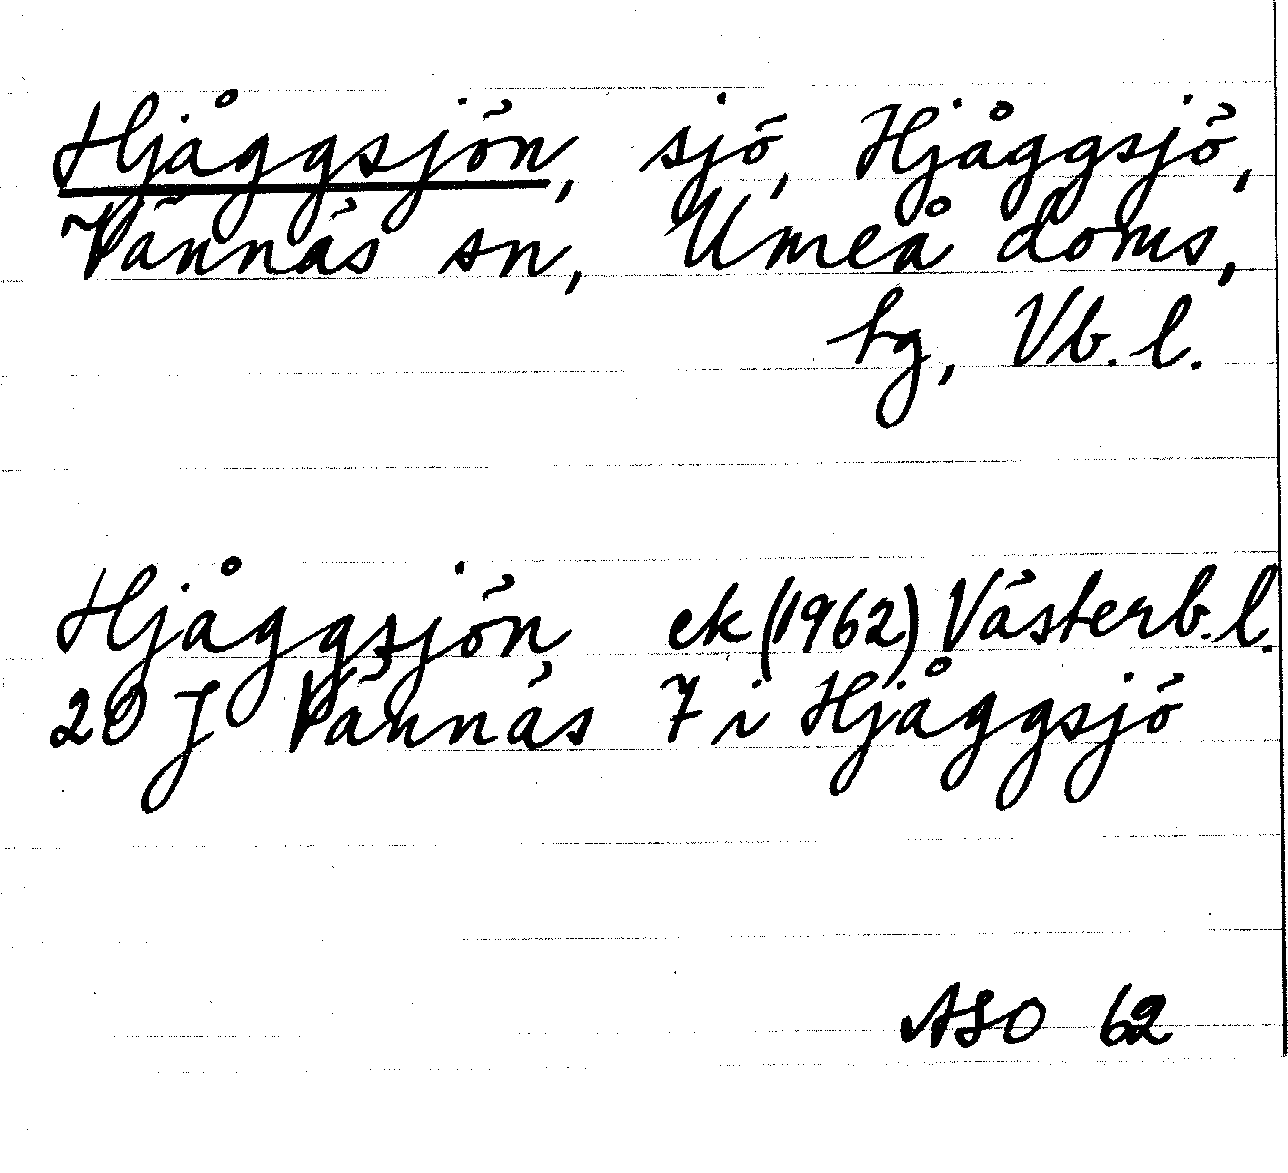 Hjåggsjön, sjö, Hjåggsjö,
Vännäs sn, Umeå doms,
hg, Vb. l.
Hjåggsjön ek (1962) Västerb. l.
20 J Vännäs 7 i Hjåggsjö
ASO 62